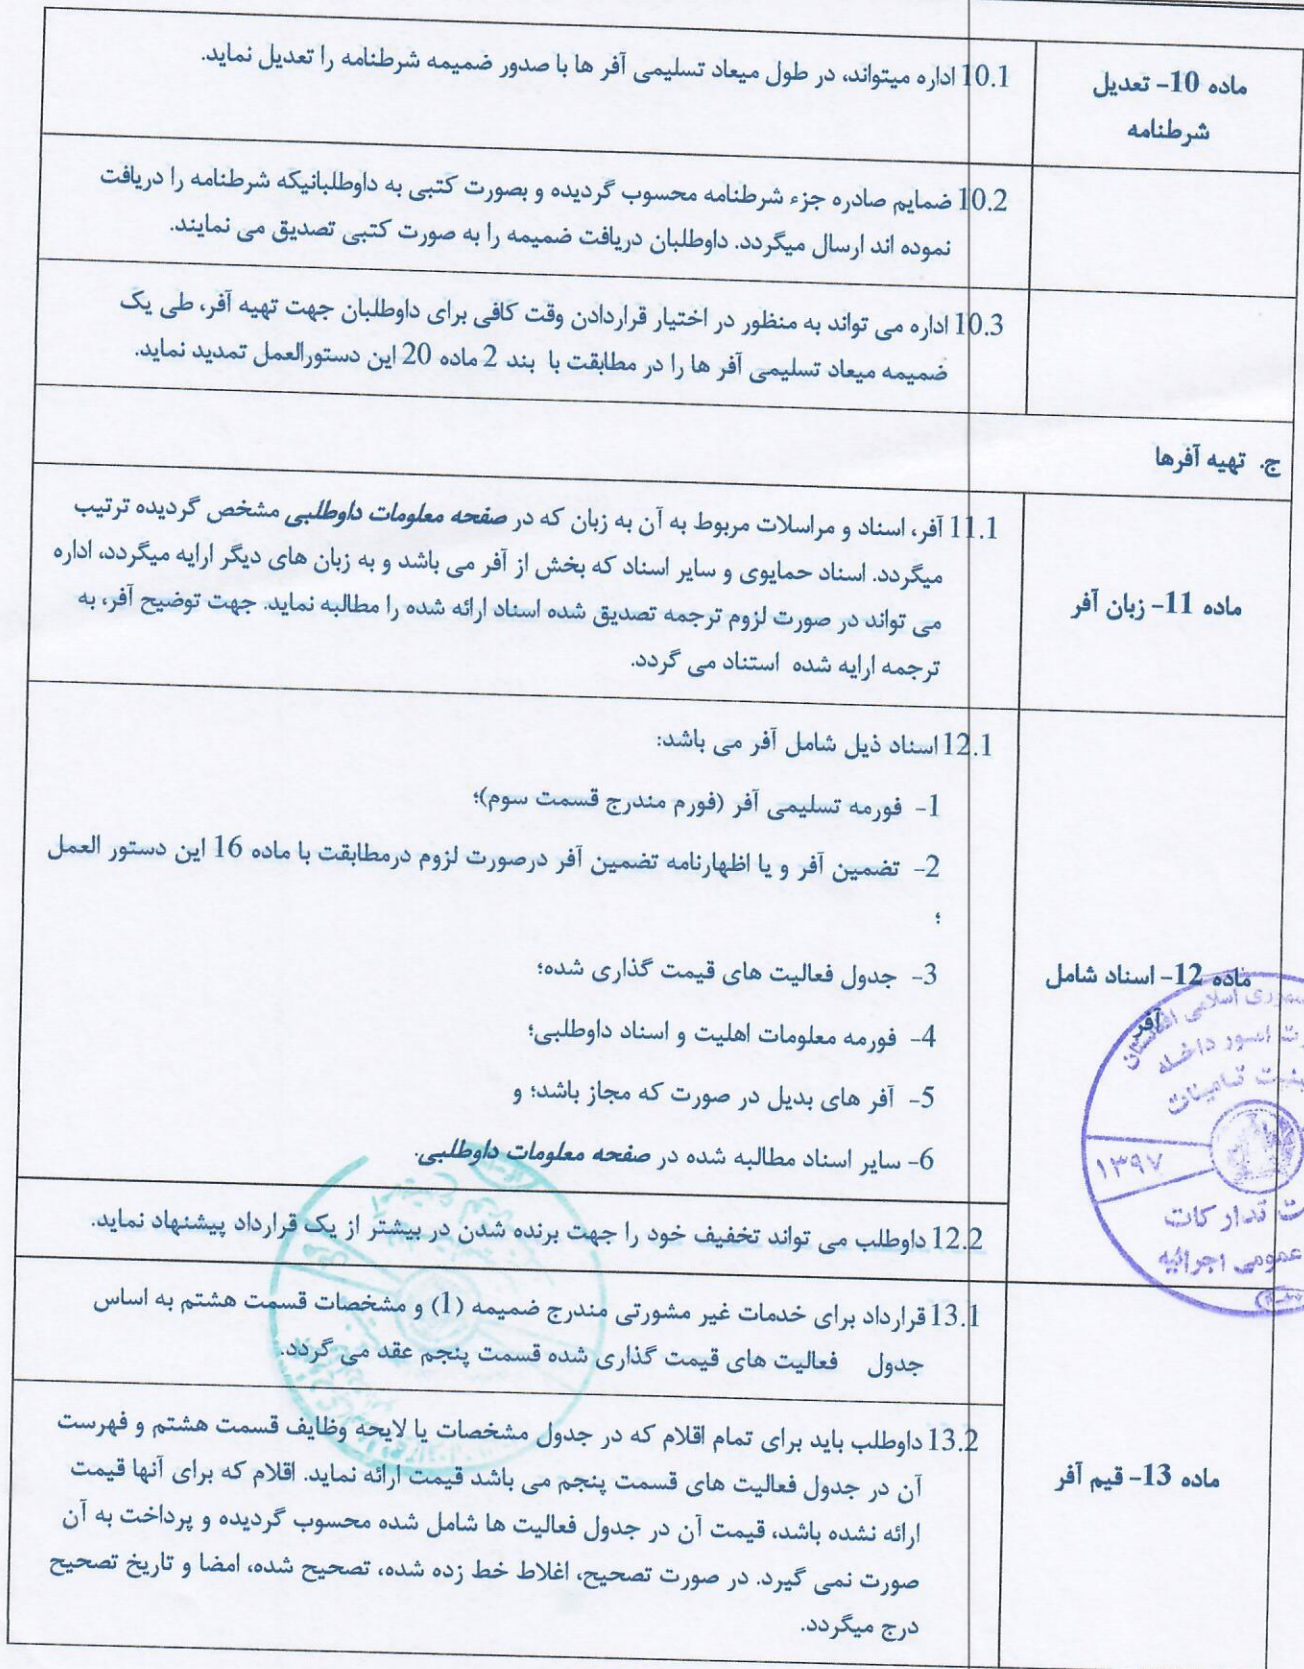 ماده 10- تعدیل
شرطنامه
10.1 اداره میتواند، در طول میعاد تسلیمی آفر ها با صدور ضمیمه شرطنامه را تعدیل نماید.
10.2 ضمایم صادره جزء شرطنامه محسوب گردیده و بصورت کتبی به داوطلبانیکه شرطنامه را دریافت
نموده اند ارسال میگردد. داوطلبان دریافت ضمیمه را به صورت کتبی تصدیق می نمایند.
10.3 اداره می تواند به منظور در اختیار قراردادن وقت کافی برای داوطلبان جهت تهیه آفر، طی یک
ضمیمه میعاد تسلیمی آفر ها را در مطابقت با بند 2 ماده 20 این دستورالعمل تمدید نماید.
ج. تهیه آفرها
ماده 11- زبان آفر
11.1 آفر، اسناد و مراسلات مربوط به آن به زبان که در صفحه معلومات داوطلبی مشخص گردیده ترتیب
میگردد. اسناد حمایوی و سایر اسناد که بخش از آفر می باشد و به زبان های دیگر ارایه میگردد، اداره
می تواند در صورت لزوم ترجمه تصدیق شده اسناد ارائه شده را مطالبه نماید. جهت توضیح آفر، به
ترجمه ارایه شده استناد می گردد.
ماده 12- اسناد شامل
آفر
12.1 اسناد ذیل شامل آفر می باشد:
1- فورمه تسلیمی آفر (فورم مندرج قسمت سوم)؛
2- تضمین آفر و یا اظهارنامه تضمین آفر درصورت لزوم درمطابقت با ماده 16 این دستور العمل
؛
3- جدول فعالیت های قیمت گذاری شده؛
4- فورمه معلومات اهلیت و اسناد داوطلبی؛
5- آفر های بدیل در صورت که مجاز باشد؛ و
6- سایر اسناد مطالبه شده در صفحه معلومات داوطلبی.
12.2 داوطلب می تواند تخفیف خود را جهت برنده شدن در بیشتر از یک قرارداد پیشنهاد نماید.
ماده 13- قیم آفر
13.1 قرارداد برای خدمات غیر مشورتی مندرج ضمیمه (1) و مشخصات قسمت هشتم به اساس
جدول فعالیت های قیمت گذاری شده قسمت پنجم عقد می گردد.
13.2 داوطلب باید برای تمام اقلام که در جدول مشخصات یا لایحه وظایف قسمت هشتم و فهرست
آن در جدول فعالیت های قسمت پنجم می باشد قیمت ارائه نماید. اقلام که برای آنها قیمت
ارائه نشده باشد، قیمت آن در جدول فعالیت ها شامل شده محسوب گردیده و پرداخت به آن
صورت نمی گیرد. در صورت تصحیح، اغلاط خط زده شده، تصحیح شده، امضا و تاریخ تصحیح
درج میگردد.
اسلامی
امور داخله
تامینات
۱۳۹۷
تدارکات
عمومی اجرائیه